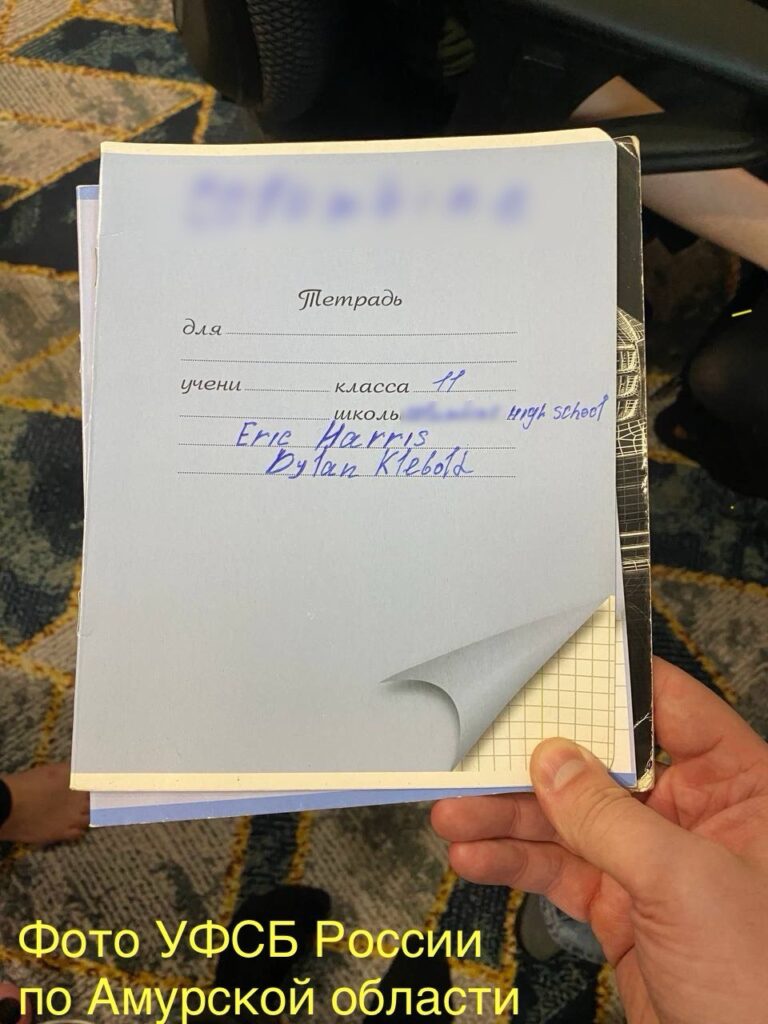 Тетрадь
для
учени класса 11
школы High school
Eric Harris
Dylan Klebold
Фото УФСБ России
по Амурской области